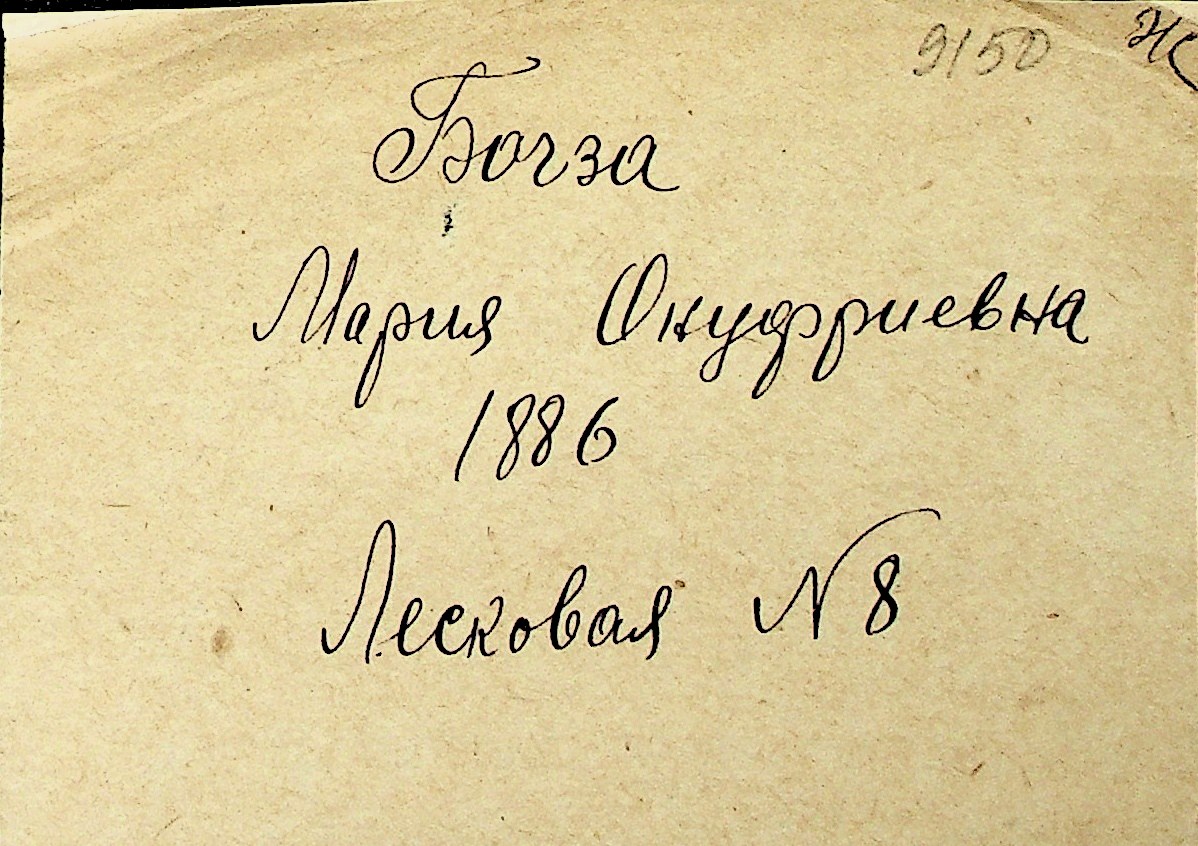 9150
Богза
Мария Онуфриевна
1886
Лесковая N 8